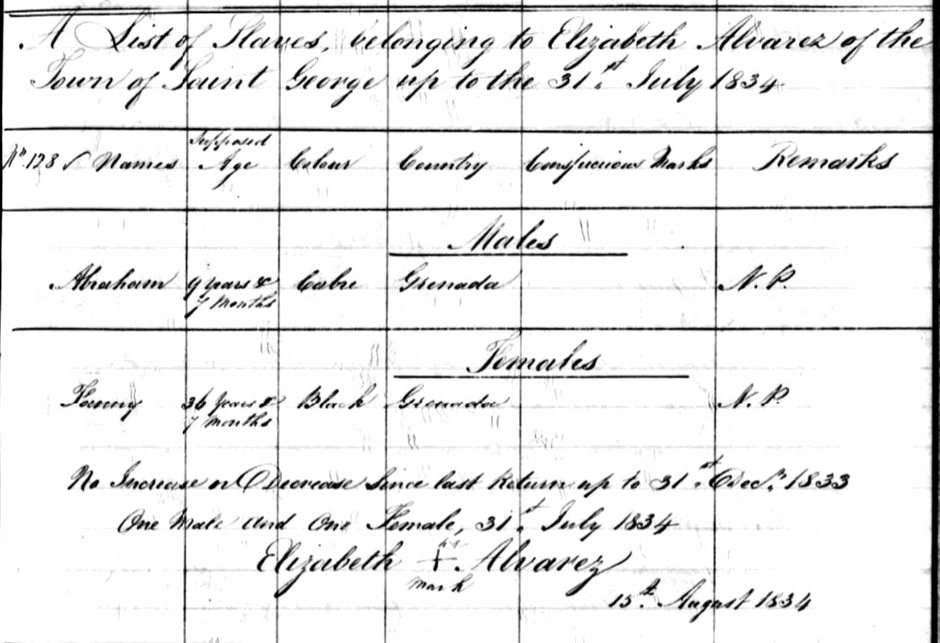 A List of Slaves, belonging to Elizabeth Alvarez of the
Town of Saint George up to the 31.st July 1834
No. 128 Names Supposed Age Colour Country Conspicious Marks Remarks
Males
Abraham 9 years & 7 Months Cabre Grenada N. P.
Females
Fanny 36 Years & 7 Months Black Grenada N. P.
No Increase or Decrease Since last Return up to 31.st Decr. 1833
One Male and One Female, 31.st July 1834
Elizabeth + Alvarez
her
Mark
15th. August 1834